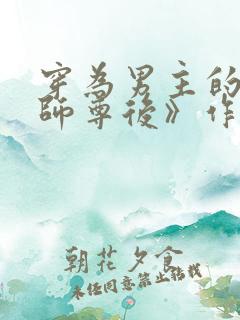 穿為男主的
師尊後》作
朝花夕食
未經同意禁止轉載